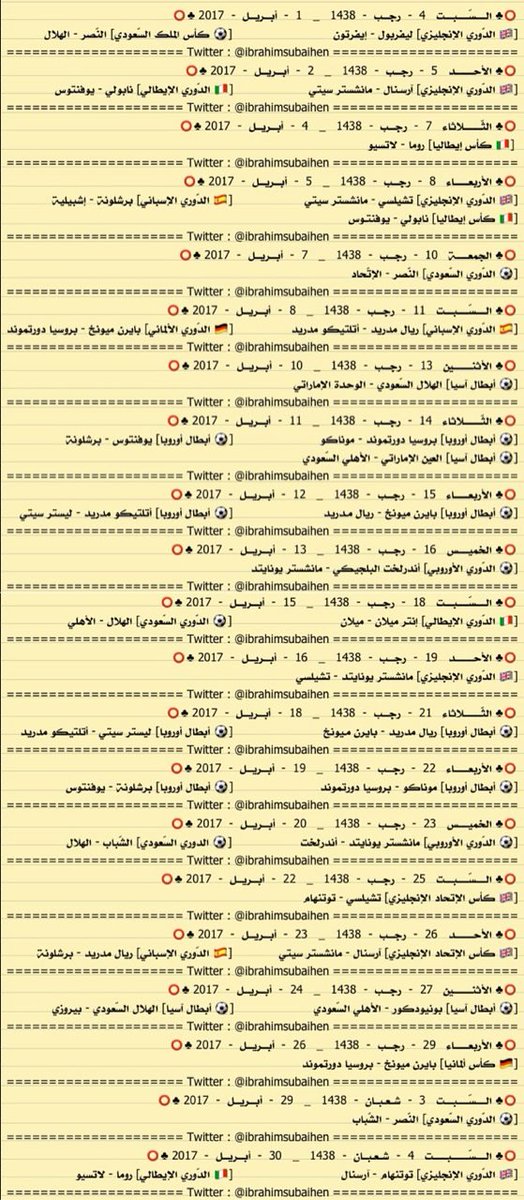 ♣ الـسـّبـت 4 - رجـب - 1438 _ 1 - أبـريـل - 2017 ♣
[الدّوري الإنجليزي] ليفربول - إيفرتون [كأس الملك السّعودي] النّصر - الهلال
=================== Twitter : @ibrahimsubaihen ===================
♣ الأحـد 5 - رجـب - 1438 _ 2 - أبـريـل - 2017 ♣
[الدّوري الإنجليزي] آرسنال - مانشستر سيتي [الدّوري الإيطالي] نابولي - يوفنتوس
=================== Twitter : @ibrahimsubaihen ===================
♣ الثّـلاثاء 7 - رجـب - 1438 _ 4 - أبـريـل - 2017 ♣
[كأس إيطاليا] روما - لاتسيو
=================== Twitter : @ibrahimsubaihen ===================
♣ الأربعـاء 8 - رجـب - 1438 _ 5 - أبـريـل - 2017 ♣
[الدّوري الإنجليزي] تشيلسي - مانشستر سيتي [الدّوري الإسباني] برشلونة - إشبيلية
[كأس إيطاليا] نابولي - يوفنتوس
=================== Twitter : @ibrahimsubaihen ===================
♣ الجمعـة 10 - رجـب - 1438 _ 7 - أبـريـل - 2017 ♣
[الدّوري السّعودي] النّصر - الإتّحاد
=================== Twitter : @ibrahimsubaihen ===================
♣ الـسـّبـت 11 - رجـب - 1438 _ 8 - أبـريـل - 2017 ♣
[الدّوري الإسباني] ريال مدريد - أتلتيكو مدريد [الدّوري الألماني] بايرن ميونخ - بروسيا دورتموند
=================== Twitter : @ibrahimsubaihen ===================
♣ الأثنـين 13 - رجـب - 1438 _ 10 - أبـريـل - 2017 ♣
[أبطال آسيا] الهلال السّعودي - الوحدة الإماراتي
=================== Twitter : @ibrahimsubaihen ===================
♣ الثّـلاثاء 14 - رجـب - 1438 _ 11 - أبـريـل - 2017 ♣
[أبطال أوروبا] بروسيا دورتموند - موناكو [أبطال أوروبا] يوفنتوس - برشلونة
[أبطال آسيا] العين الإماراتي - الأهلي السّعودي
=================== Twitter : @ibrahimsubaihen ===================
♣ الأربعـاء 15 - رجـب - 1438 _ 12 - أبـريـل - 2017 ♣
[أبطال أوروبا] بايرن ميونخ - ريال مدريد [أبطال أوروبا] أتلتيكو مدريد - ليستر سيتي
=================== Twitter : @ibrahimsubaihen ===================
♣ الخميس 16 - رجـب - 1438 _ 13 - أبـريـل - 2017 ♣
[الدّوري الأوروبي] أندرلخت البلجيكي - مانشستر يونايتد
=================== Twitter : @ibrahimsubaihen ===================
♣ الـسـّبـت 18 - رجـب - 1438 _ 15 - أبـريـل - 2017 ♣
[الدّوري الإيطالي] إنتر ميلان - ميلان [الدّوري السّعودي] الهلال - الأهلي
=================== Twitter : @ibrahimsubaihen ===================
♣ الأحـد 19 - رجـب - 1438 _ 16 - أبـريـل - 2017 ♣
[الدّوري الإنجليزي] مانشستر يونايتد - تشيلسي
=================== Twitter : @ibrahimsubaihen ===================
♣ الثّـلاثاء 21 - رجـب - 1438 _ 18 - أبـريـل - 2017 ♣
[أبطال أوروبا] ريال مدريد - بايرن ميونخ [أبطال أوروبا] ليستر سيتي - أتلتيكو مدريد
=================== Twitter : @ibrahimsubaihen ===================
♣ الأربعـاء 22 - رجـب - 1438 _ 19 - أبـريـل - 2017 ♣
[أبطال أوروبا] موناكو - بروسيا دورتموند [أبطال أوروبا] برشلونة - يوفنتوس
=================== Twitter : @ibrahimsubaihen ===================
♣ الخميس 23 - رجـب - 1438 _ 20 - أبـريـل - 2017 ♣
[الدّوري الأوروبي] مانشستر يونايتد - أندرلخت [الدوري السّعودي] الشّباب - الهلال
=================== Twitter : @ibrahimsubaihen ===================
♣ الـسـّبـت 25 - رجـب - 1438 _ 22 - أبـريـل - 2017 ♣
[كأس الإتحاد الإنجليزي] تشيلسي - توتنهام
=================== Twitter : @ibrahimsubaihen ===================
♣ الأحـد 26 - رجـب - 1438 _ 23 - أبـريـل - 2017 ♣
[كأس الإتحاد الإنجليزي] آرسنال - مانشستر سيتي [الدّوري الإسباني] ريال مدريد - برشلونة
=================== Twitter : @ibrahimsubaihen ===================
♣ الأثنـين 27 - رجـب - 1438 _ 24 - أبـريـل - 2017 ♣
[أبطال آسيا] بونيودكور - الأهلي السّعودي [أبطال آسيا] الهلال السّعودي - بيروزي
=================== Twitter : @ibrahimsubaihen ===================
♣ الأربعـاء 29 - رجـب - 1438 _ 26 - أبـريـل - 2017 ♣
[كأس ألمانيا] بايرن ميونخ - بروسيا دورتموند
=================== Twitter : @ibrahimsubaihen ===================
♣ الـسـّبـت 3 - شـعبـان - 1438 _ 29 - أبـريـل - 2017 ♣
[الدّوري السّعودي] النّصر - الشّباب
=================== Twitter : @ibrahimsubaihen ===================
♣ الـسـّبـت 4 - شـعبـان - 1438 _ 30 - أبـريـل - 2017 ♣
[الدّوري الإنجليزي] توتنهام - آرسنال [الدّوري الإيطالي] روما - لاتسيو
=================== Twitter : @ibrahimsubaihen ===================